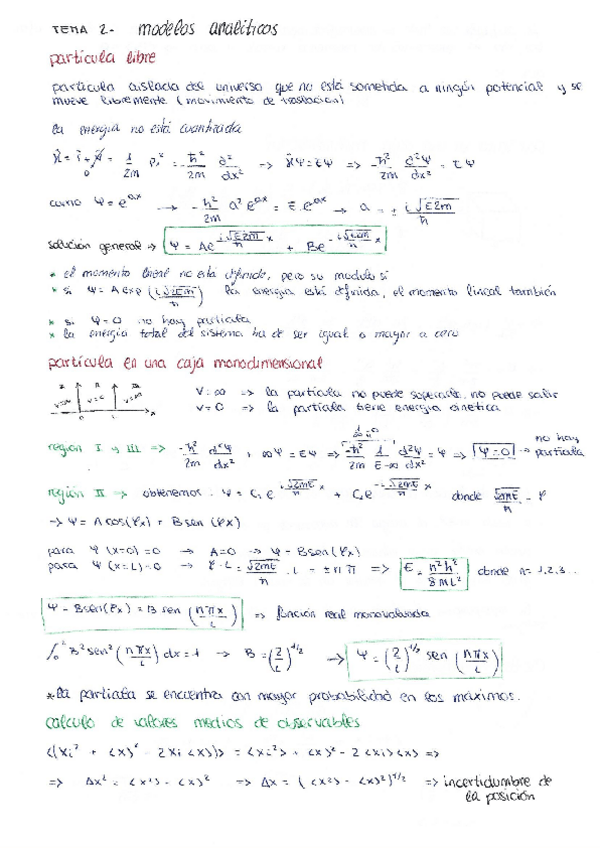 TEMA 2- modelos analíticos
partícula libre
partícula aislada del universo que no está sometida a ningún potencial y se
mueve libremente (movimiento de traslación)
la energía no está cuantizada
Ĥ = T̂ + V̂ = 1/2m p̂x² = -ħ²/2m d²/dx² → ĤΨ = EΨ => -ħ²/2m d²Ψ/dx² = EΨ
0
como Ψ = e^ax → -ħ²/2m a² e^ax = E·e^ax → a = ± i√E2m/ħ
solución general → Ψ = Ae^(i√E2m/ħ x) + Be^(-i√E2m/ħ x)
* el momento lineal no está definido, pero su modulo sí
* si Ψ = A exp (i√2Em/ħ) la energía está definida, el momento lineal también
* si Ψ=0 no hay partícula
* la energía total del sistema ha de ser igual o mayor a cero
partícula en una caja monodimensional
I II III
V=∞ V=0 V=∞
0 L x
V=∞ => la partícula no puede superarla, no puede salir
V=0 => la partícula tiene energía cinética
1/∞=0
región I y III => -ħ²/2m d²Ψ/dx² + ∞Ψ = EΨ => -ħ²/2m 1/E-∞ d²Ψ/dx² = Ψ => Ψ=0 → no hay partícula
región II => obtenemos: Ψ = C₁e^(i√2mE/ħ x) + C₂e^(-i√2mE/ħ x) donde √2mE/ħ = φ
→ Ψ = A cos(φx) + B sen(φx)
para Ψ(x=0)=0 → A=0 → Ψ = B sen(φx)
para Ψ(x=L)=0 → φ·L = √2mE/ħ · L = ±nπ => E = n²h²/8mL² donde n=1,2,3...
Ψ = B sen(φx) = B sen (nπx/L) => función real monovaluada
∫₀ᴸ B² sen² (nπx/L) dx = 1 → B = (2/L)^1/2 → Ψ = (2/L)^1/2 sen (nπx/L)
* la partícula se encuentra con mayor probabilidad en los máximos.
calculo de valores medios de observables
<(xi² + <x>² - 2xi<x>)> = <xi²> + <x>² - 2<xi><x> =>
=> Δx² = <x²> - <x>² => Δx = (<x²> - <x>²)^1/2 => incertidumbre de
la posición